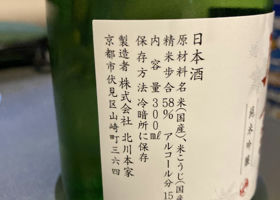 日本酒
原材料名 米(国産)、米こうじ(国産
精米歩合 58% アルコール分 15
内容量 300ml
保存方法 冷暗所に保存
製造者 株式会社 北川本家
京都市伏見区山崎町三六四
純米吟醸